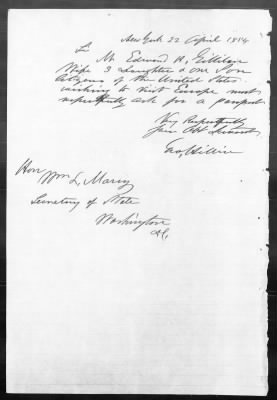 New York 22 April 1854
Sir
Mr Edward H. Gillilan
Wife 3 Daughters & One Son
Citizens of the United States
wishing to visit Europe most
respectfully ask for a passport
Very Respectfully
Your Obt Servant
Hon
Wm L. Marcy
Secretary of State
Washington
D.C.